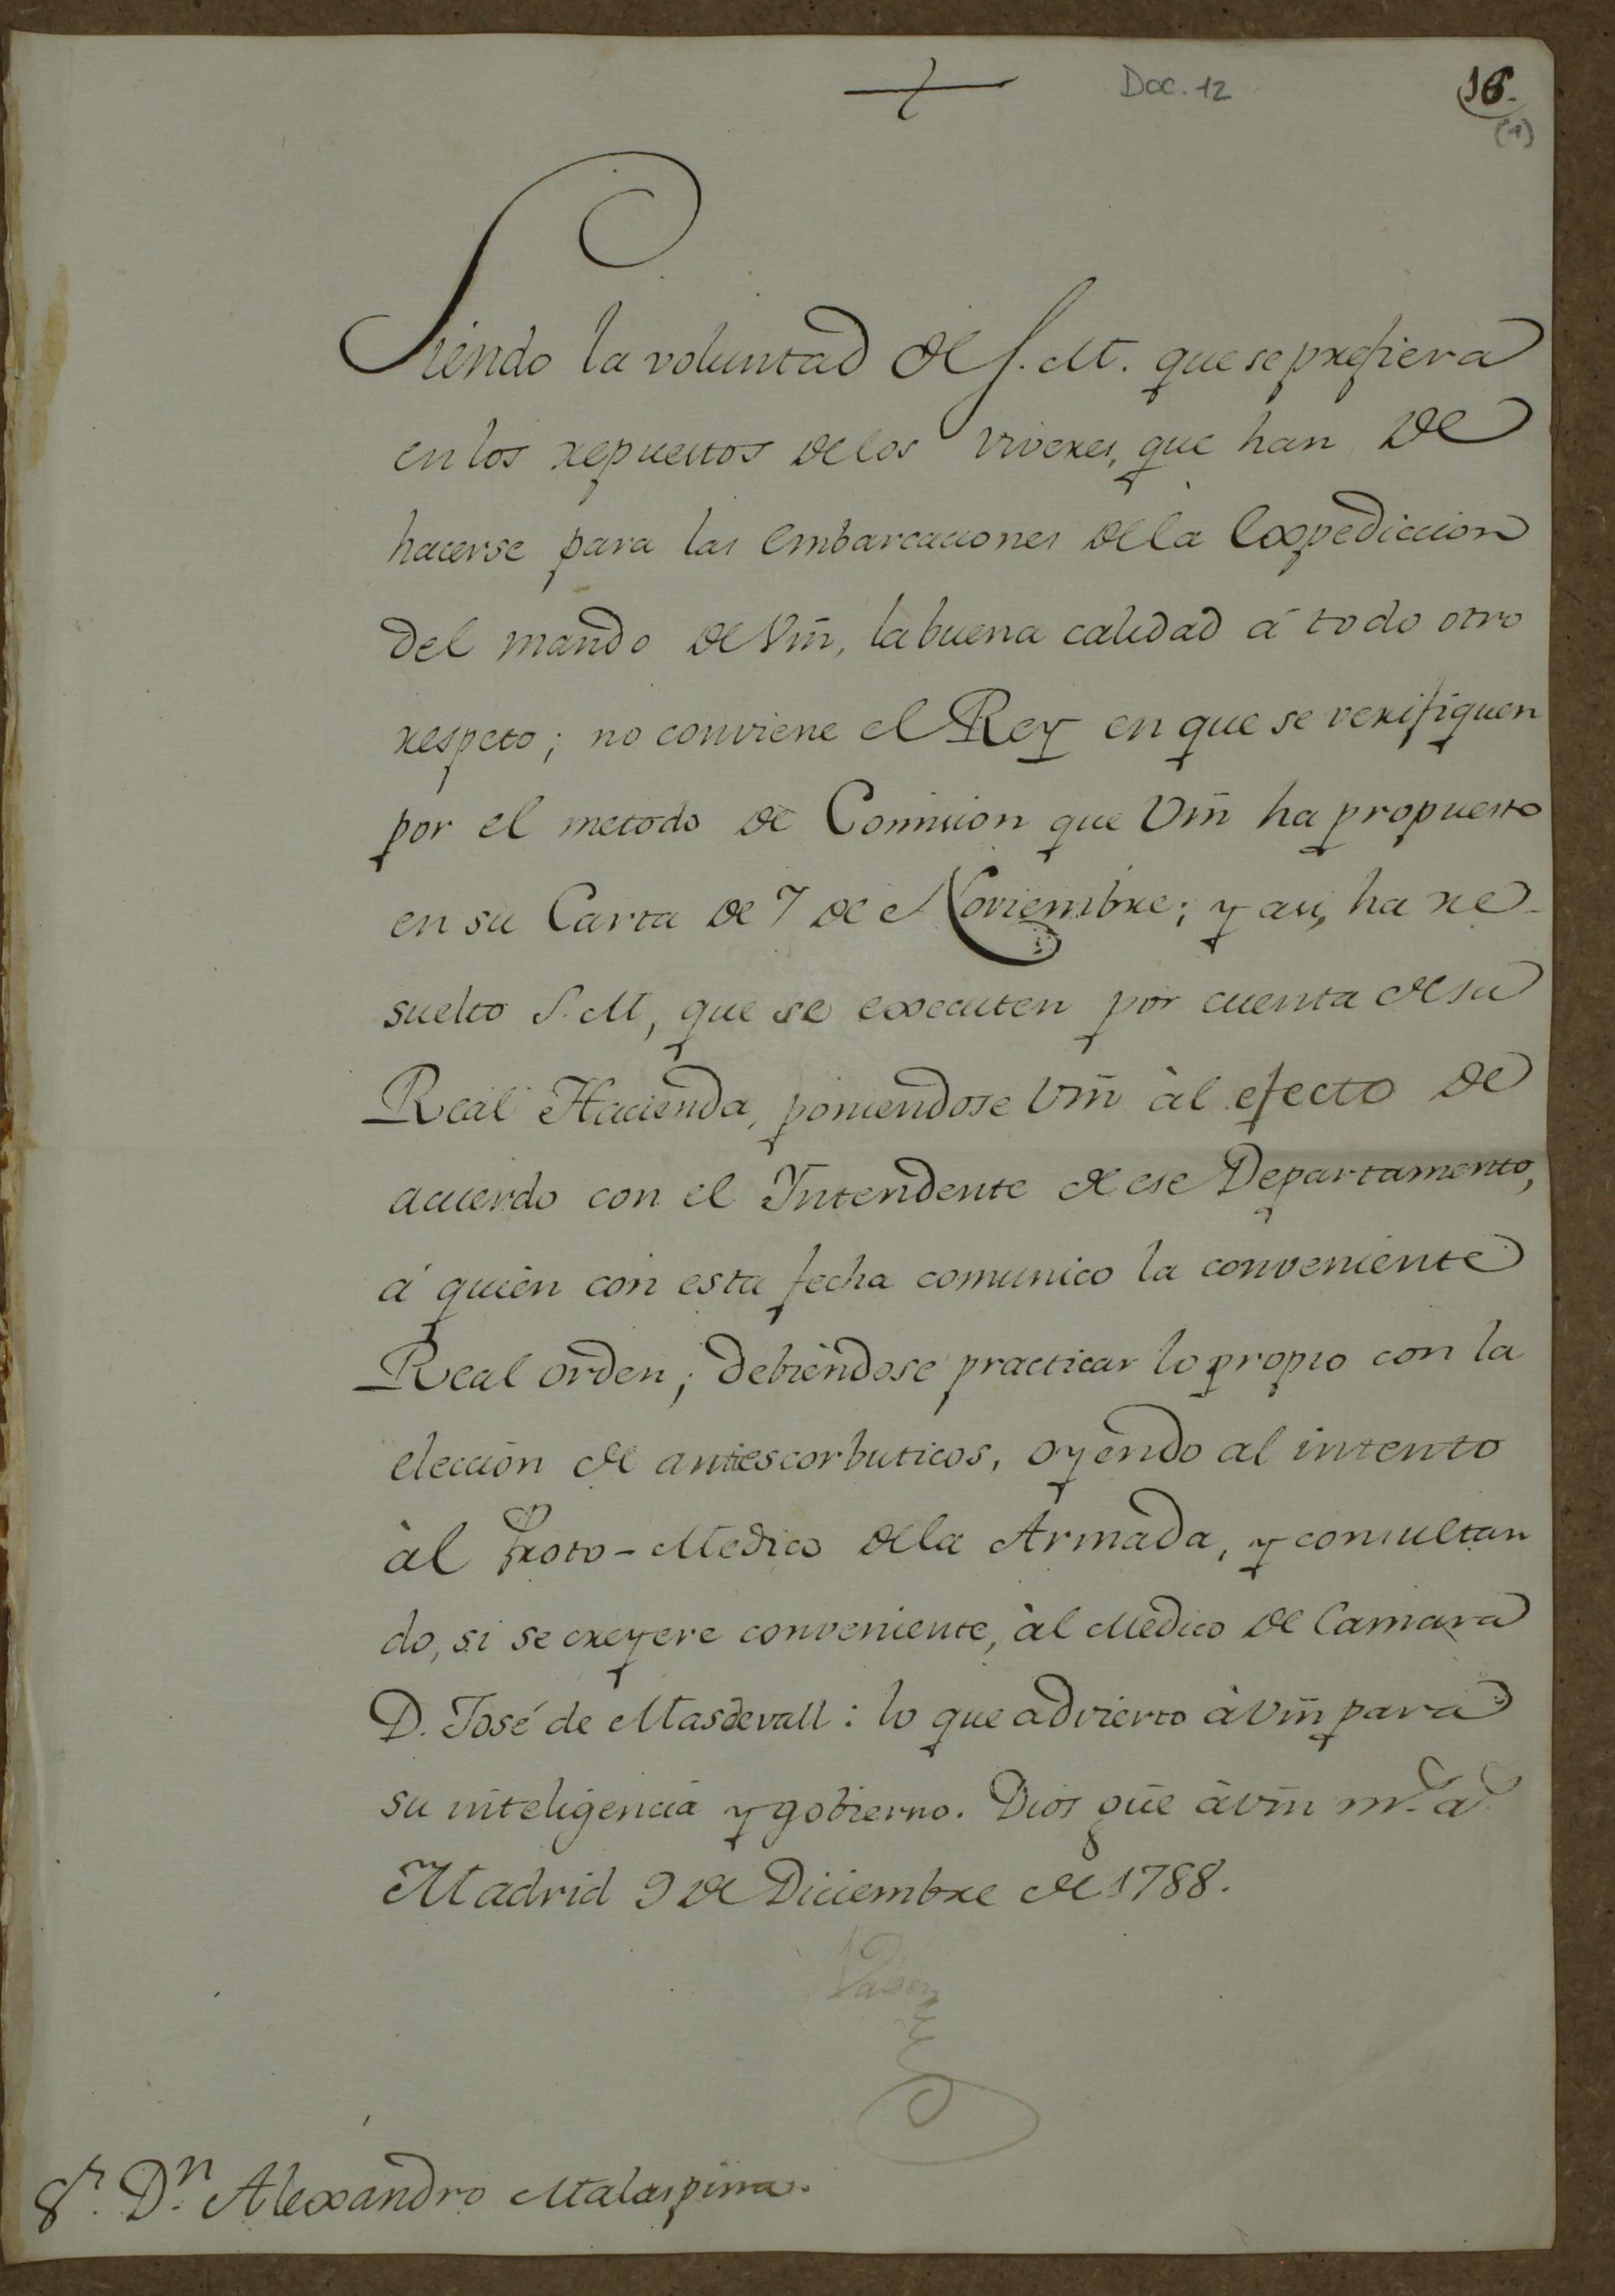 Doc. 12
16.
(1)
Siendo la voluntad de S. M. que se prefiera
en los repuestos de los viveres, que han de
hacerse para las embarcaciones de la Expediccion
del mando de Vm̃, la buena calidad á todo otro
respeto; no conviene el Rey en que se verifiquen
por el metodo de Comision que Vm̃ ha propuesto
en su Carta de 7 de Noviembre; y asi, ha re-
suelto S. M, que se executen por cuenta de su
Real Hacienda, poniendose Vm̃ àl efecto de
acuerdo con el Yntendente de ese Departamento,
á quien con esta fecha comunico la conveniente
Real orden; debiendose practicar lo propio con la
eleccion de antiescorbuticos, oyendo al intento
àl Proto-Medico de la Armada, y consultan
do, si se creyere conveniente, àl Medico de Camara
D. José de Masdevall: lo que advierto à Vm̃ para
su inteligencia y gobierno. Dios gūe à Vm̃ m.s a.s
Madrid 9 de Diciembre de 1788.
Valdes
S.r D.n Alexandro Malaspina.